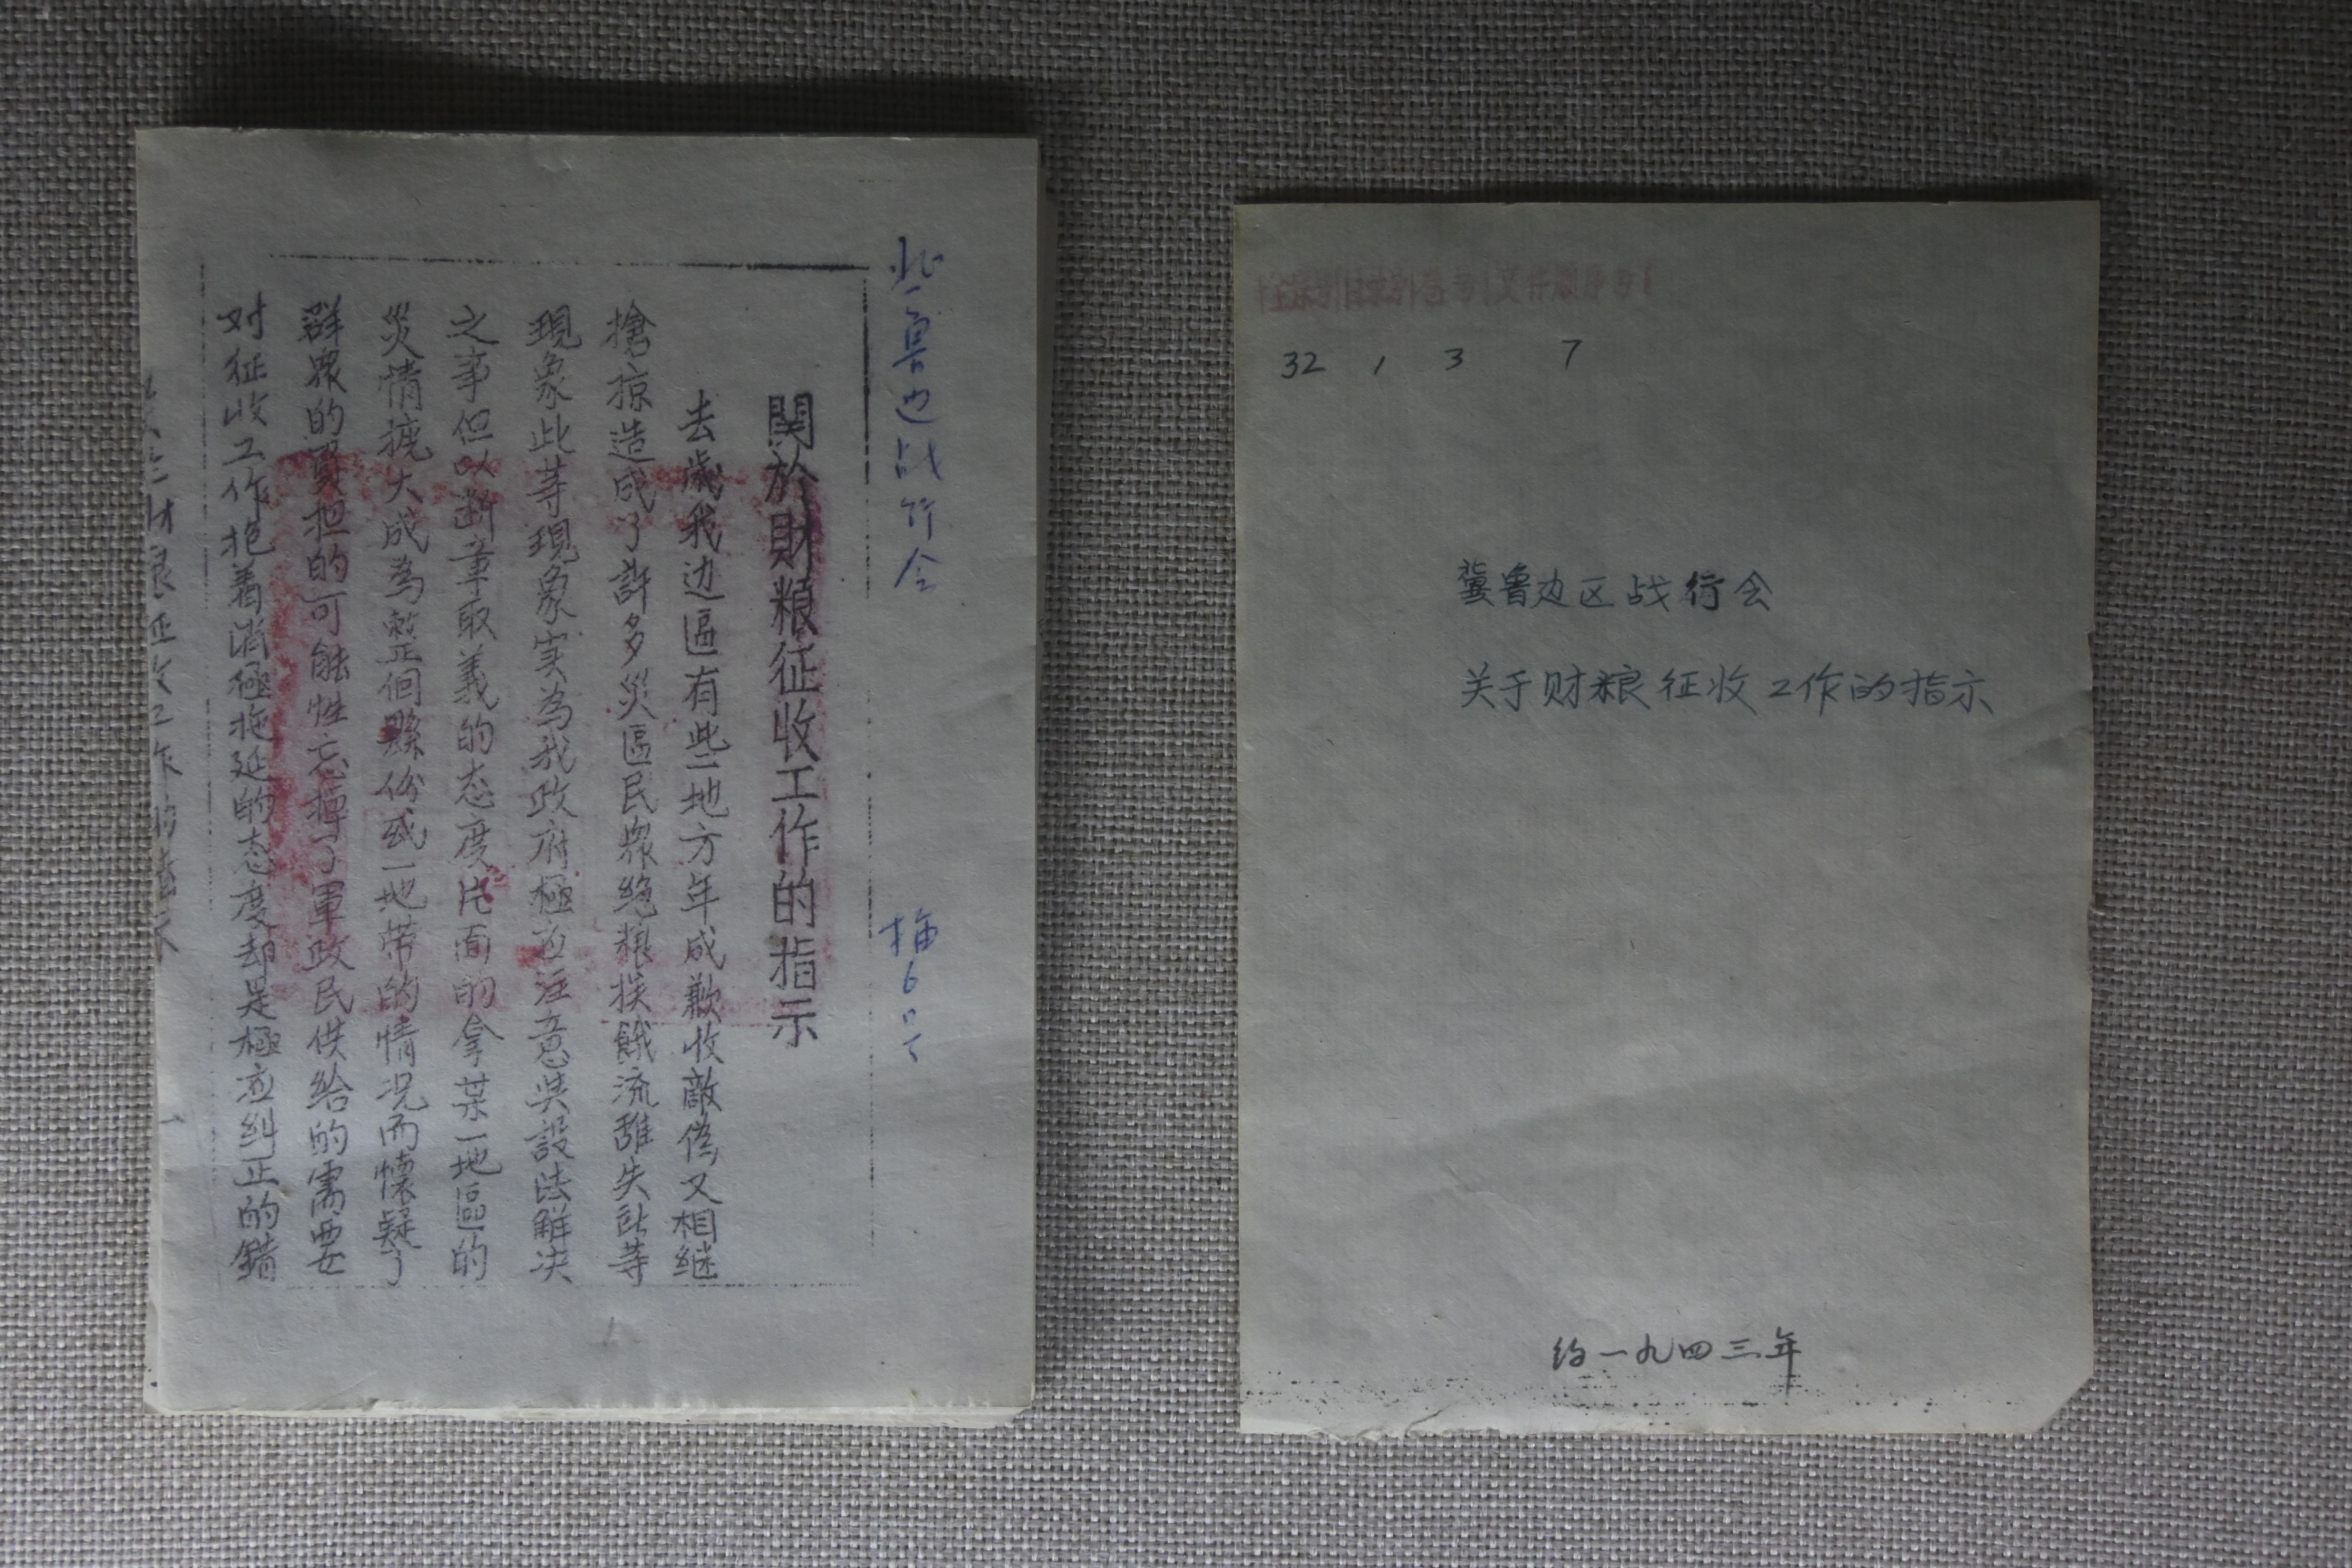 鲁边战行会
関於財粮征收工作的指示
去歲我边區有些地方年成歉收敵偽又相継
搶掠造成了許多災區民衆絶粮挨餓流離失所等
現象此等現象実為我政府極应注意與設法解决
之事但以断章取義的态度片面的拿某一地區的
災情擴大成為整個縣份或一地带的情况而懷疑了
群衆的負担的可能性忘掉了軍政民供給的需要
对征收工作抱着消極拖延的态度却是極应糾正的錯
全宗号目录号卷号文件顺序号
32 1 3 7
冀鲁边区战行会
关于财粮征收工作的指示
约一九四三年